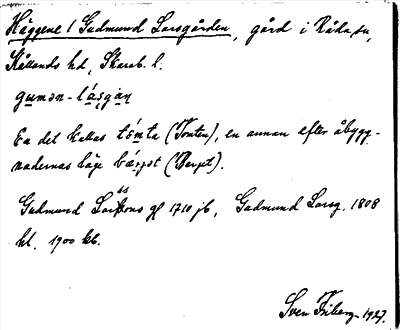 Häggene 1 Gudmund Larsgården, gård i Råda sn,
Kållands hd, Skarab. l.
guman - lásgan
En det kallas tómta (Tomten), en annan efter åbygg-
nadernas läge bárjət (Berget).
Gudmund Larssons gl 1710 jb, Gudmund Larsg. 1808
ht. 1900 kb.
Sven Friberg 1927.